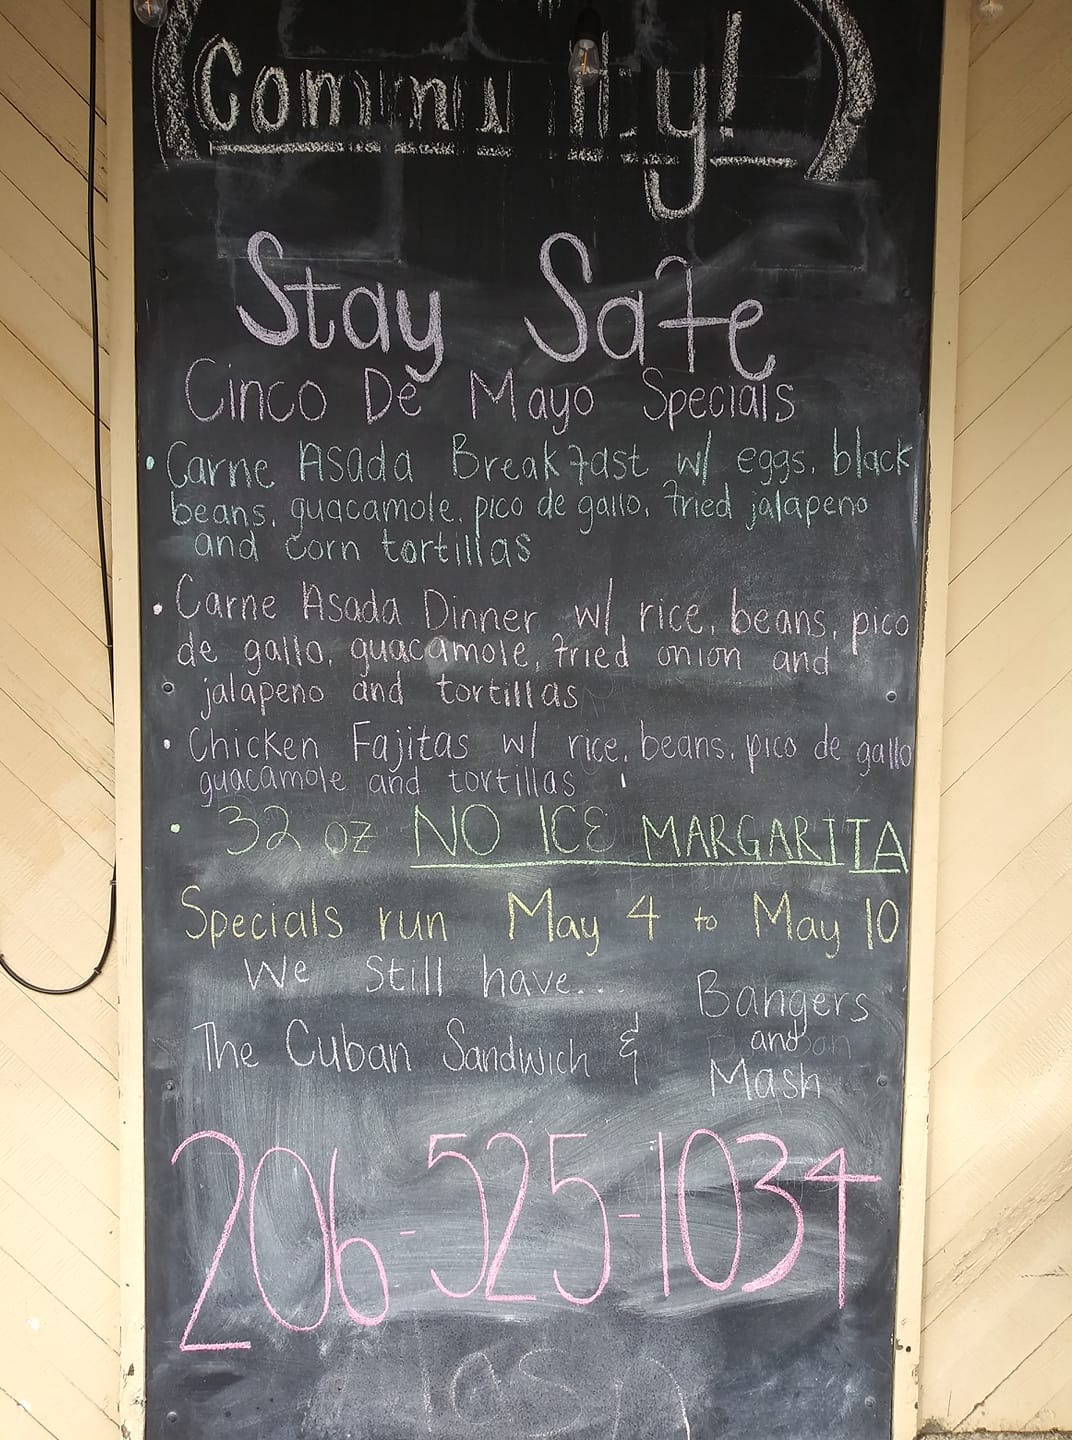 Community!
Stay Safe
Cinco De Mayo Specials
• Carne Asada Breakfast w/ eggs, black
beans, guacamole, pico de gallo, fried jalapeno
and corn tortillas
• Carne Asada Dinner w/ rice, beans, pico
de gallo, guacamole, fried onion and
jalapeno and tortillas
• Chicken Fajitas w/ rice, beans, pico de gallo
guacamole and tortillas
• 32 oz NO ICE MARGARITA
Specials run May 4 to May 10
We still have...
The Cuban Sandwich &
Bangers
and
Mash
206-525-1034